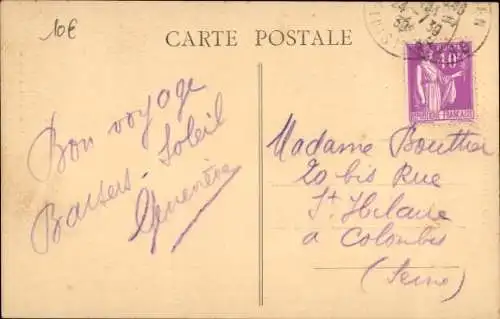 10€
CARTE POSTALE
POSTES
40c
REPUBLIQUE FRANÇAISE
Bon voyage
Baisers. Soleil
Geneviève
Madame Bouthier
20 bis Rue
St Hilaire
a Colombes
(Seine)